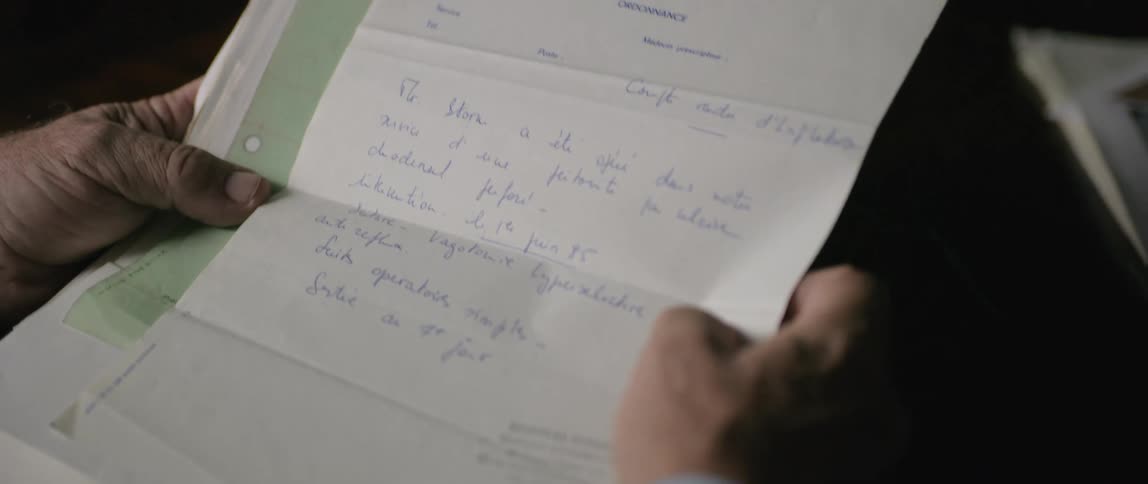 ORDONNANCE
Service
Tél
Poste .
Médecin prescripteur .
Compte rendu d'
Mr. Storm a été opéré dans notre
service d'une péritonite par ulcère
duodenal perforé -
intervention. le 1er juin 95
suture - Vagotomie hyperselective
anti reflux.
Suites operatoires simples -
Sortie au 7e jour